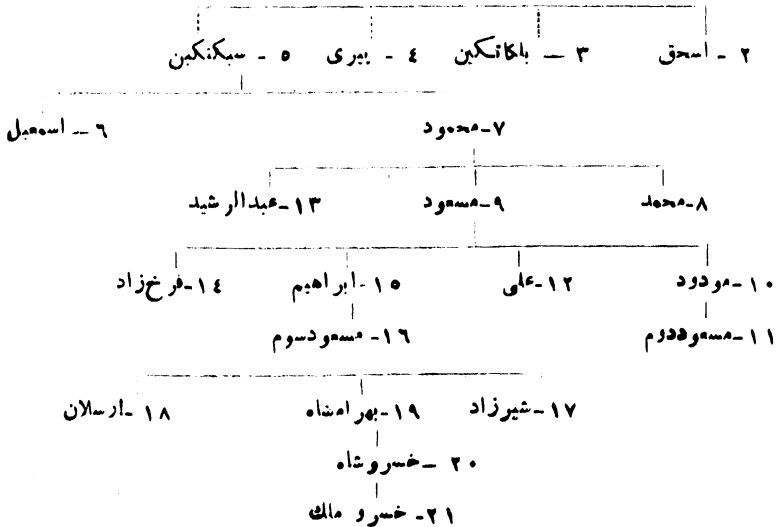 ۲ - اسحق ۳ - بلکاتکین ٤ - پیری ٥ - سبکتکین
۷-محمود ٦ - اسمعیل
۸-محمد ۹-مسعود ۱۳-عبدالرشید
۱۰-مودود ۱۲-علی ۱٥-ابراهیم ۱٤-فرخ‌زاد
۱۱-مسعوددوم ۱٦-مسعودسوم
۱۷-شیرزاد ۱۹-بهرامشاه ۱۸-ارسلان
۲۰ - خسروشاه
۲۱- خسرو ملك